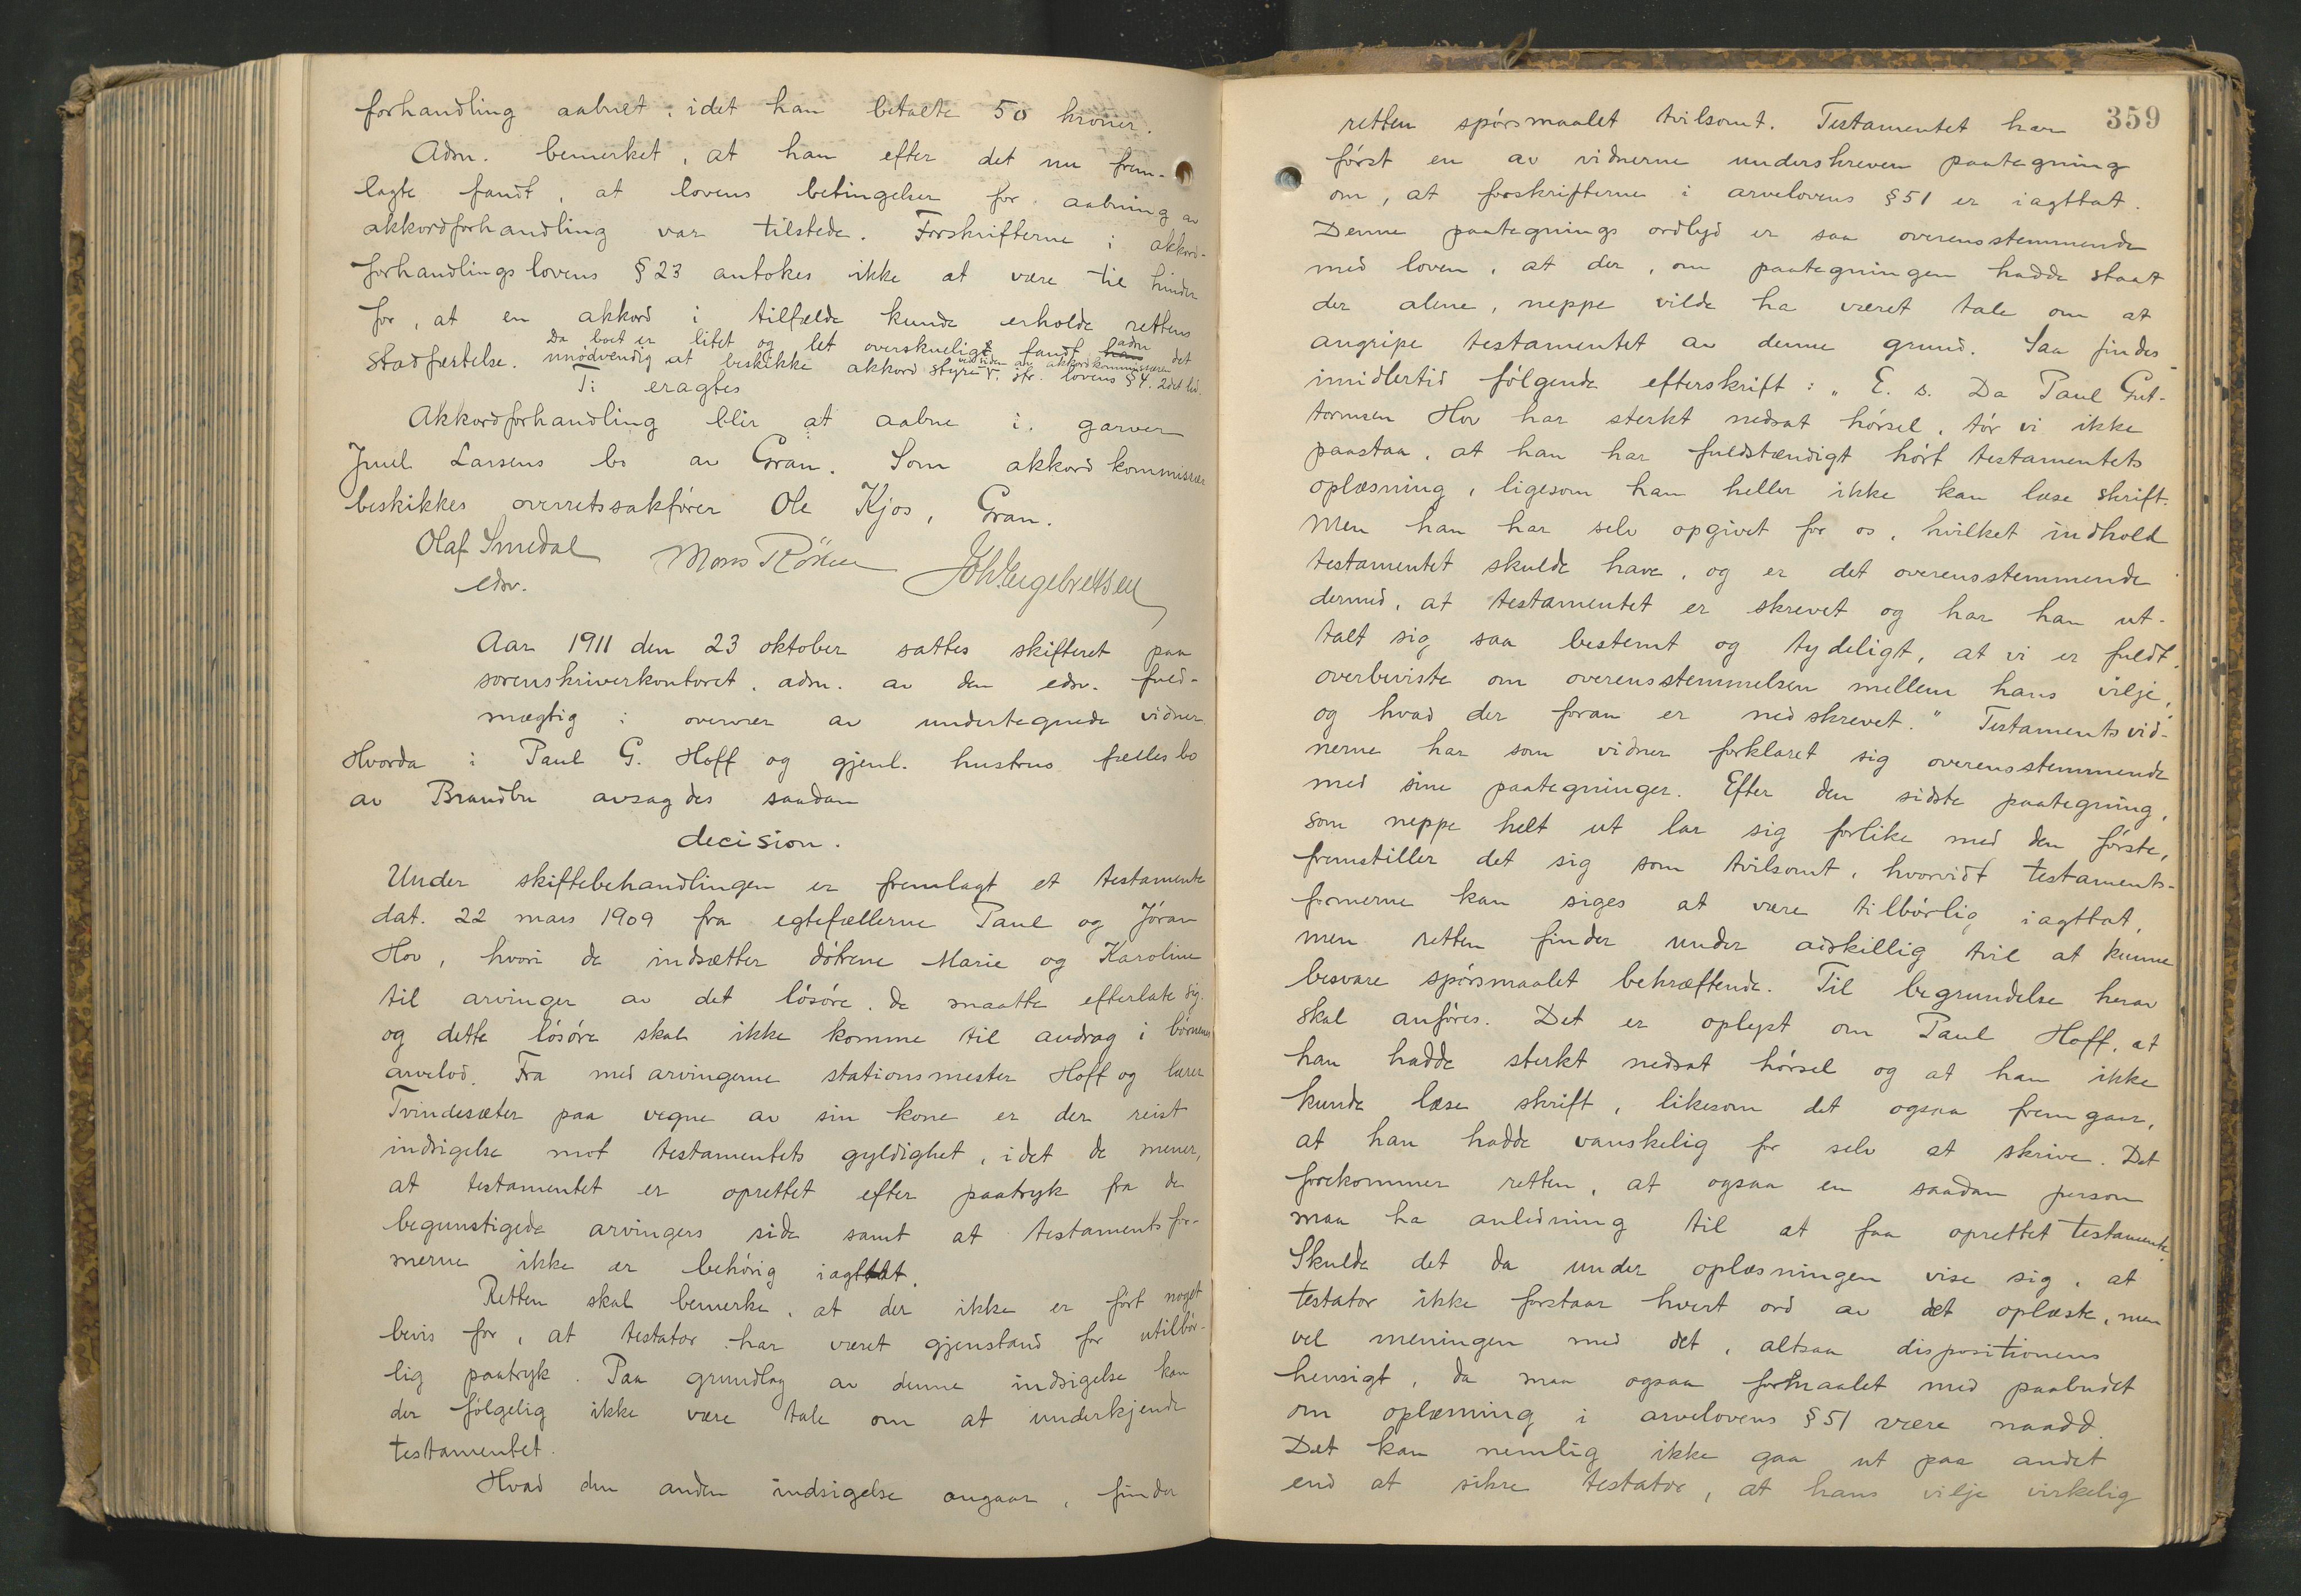 forhandling aabnet, idet han betalte 50 kroner.
Adm. bemerket, at han efter det nu frem-
lagte fandt, at lovens betingelser for aabning av
akkordforhandling var tilstede. Forskrifterne i akkord-
forhandlingslovens § 23 antokes ikke at være til hinder
for, at en akkord i tilfælde kunde erholde rettens
stadfæstelse. Da boet er litet og let overskueligt fandt adm det
unødvendig at beskikke akkordstyre ved siden av akkordkommissæren v. jfr. lovens § 4. 2det led.
Ti eragtes
Akkordforhandling blir at aabne i garver
Juul Larsens bo av Gran. Som akkordkommissær
beskikkes overretssakfører Ole Kjos, Gran.
Olaf Smedal Mons Röken Joh Engebretsen
edsv.
Aar 1911 den 23 oktober sattes skifteret paa
sorenskriverkontoret, adm. av den edsv. fuld-
mægtig i overvær av undertegnede vidner.
Hvorda i Paul G. Hoff og gjenl. hustrus fælles bo
av Brandbu avsagdes saadan
decision.
Under skiftebehandlingen er fremlagt et testamente
dat. 22 mars 1909 fra egtefællerne Paul og Jöran
Hov, hvori de indsætter døtrene Marie og Karoline
til arvinger av det løsøre, de maatte efterlate sig.
og dette løsøre skal ikke komme til andrag i børnenes
arvelod. Fra medarvingerne stationsmester Hoff og lærer
Tvindesæter paa vegne av sin kone er der reist
indsigelse mot testamentets gyldighet, idet de mener,
at testamentet er oprettet efter paatryk fra de
begunstigede arvingers side samt at testamentsfor-
merne ikke er behørig iagttat.
Retten skal bemerke, at der ikke er ført noget
bevis for, at testator har været gjenstand for utilbør-
lig paatryk. Paa grundlag av denne indsigelse kan
der følgelig ikke være tale om at underkjende
testamentet.
Hvad den anden indsigelse angaar, finder
359
retten spørsmaalet tvilsomt. Testamentet har
først en av vidnerne underskreven paategning
om, at forskrifterne i arvelovens § 51 er iagttat.
Denne paategnings ordlyd er saa overensstemmende
med loven, at der, om paategningen hadde staat
der alene, neppe vilde ha været tale om at
angripe testamentet av denne grund. Saa findes
imidlertid følgende efterskrift: „E. s. Da Paul Gut-
tormsen Hov har sterkt nedsat hørsel, tør vi ikke
paastaa, at han har fuldstændigt hørt testamentets
oplæsning, ligesom han heller ikke kan læse skrift.
Men han har selv opgivet for os, hvilket indhold
testamentet skulde have, og er det overensstemmende
dermed, at testamentet er skrevet og har han ut-
talt sig saa bestemt og tydeligt, at vi er fuldt
overbeviste om overensstemmelsen mellem hans vilje,
og hvad der foran er nedskrevet." Testamentsvid-
nerne har som vidner forklaret sig overensstemmende
med sine paategninger. Efter den sidste paategning,
som neppe helt ut lar sig forlike med den første,
fremstiller det sig som tvilsomt, hvorvidt testaments-
formerne kan siges at være tilbørlig iagttat,
men retten finder under adskillig tvil at kunne
besvare spørsmaalet bekræftende. Til begrundelse herav
skal anføres. Det er oplyst om Paul Hoff, at
han hadde sterkt nedsat hørsel og at han ikke
kunde læse skrift, likesom det ogsaa fremgaar,
at han hadde vanskelig for selv at skrive. Det
forekommer retten, at ogsaa en saadan person
maa ha anledning til at faa oprettet testamente.
Skulde det da under oplæsningen vise sig, at
testator ikke forstaar hvert ord av det oplæste, men
vel meningen med det, altsaa dispositionens
hensigt, da maa ogsaa formaalet med paabudet
om oplæsning i arvelovens § 51 være naadd.
Det kan nemlig ikke gaa ut paa andet
end at sikre testator, at hans vilje virkelig